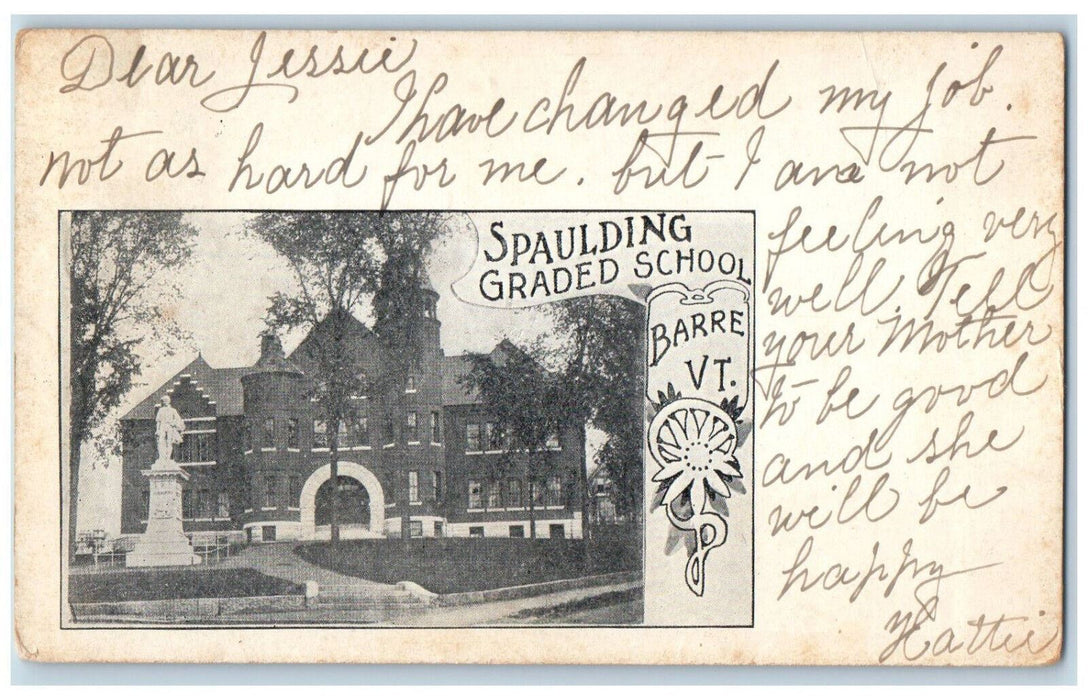 Dear Jessie
I have changed my job.
not as hard for me. but I am not
feeling very
well. Tell
your Mother
to be good
and she
will be
happy
Hattie
SPAULDING
GRADED SCHOOL
BARRE
VT.